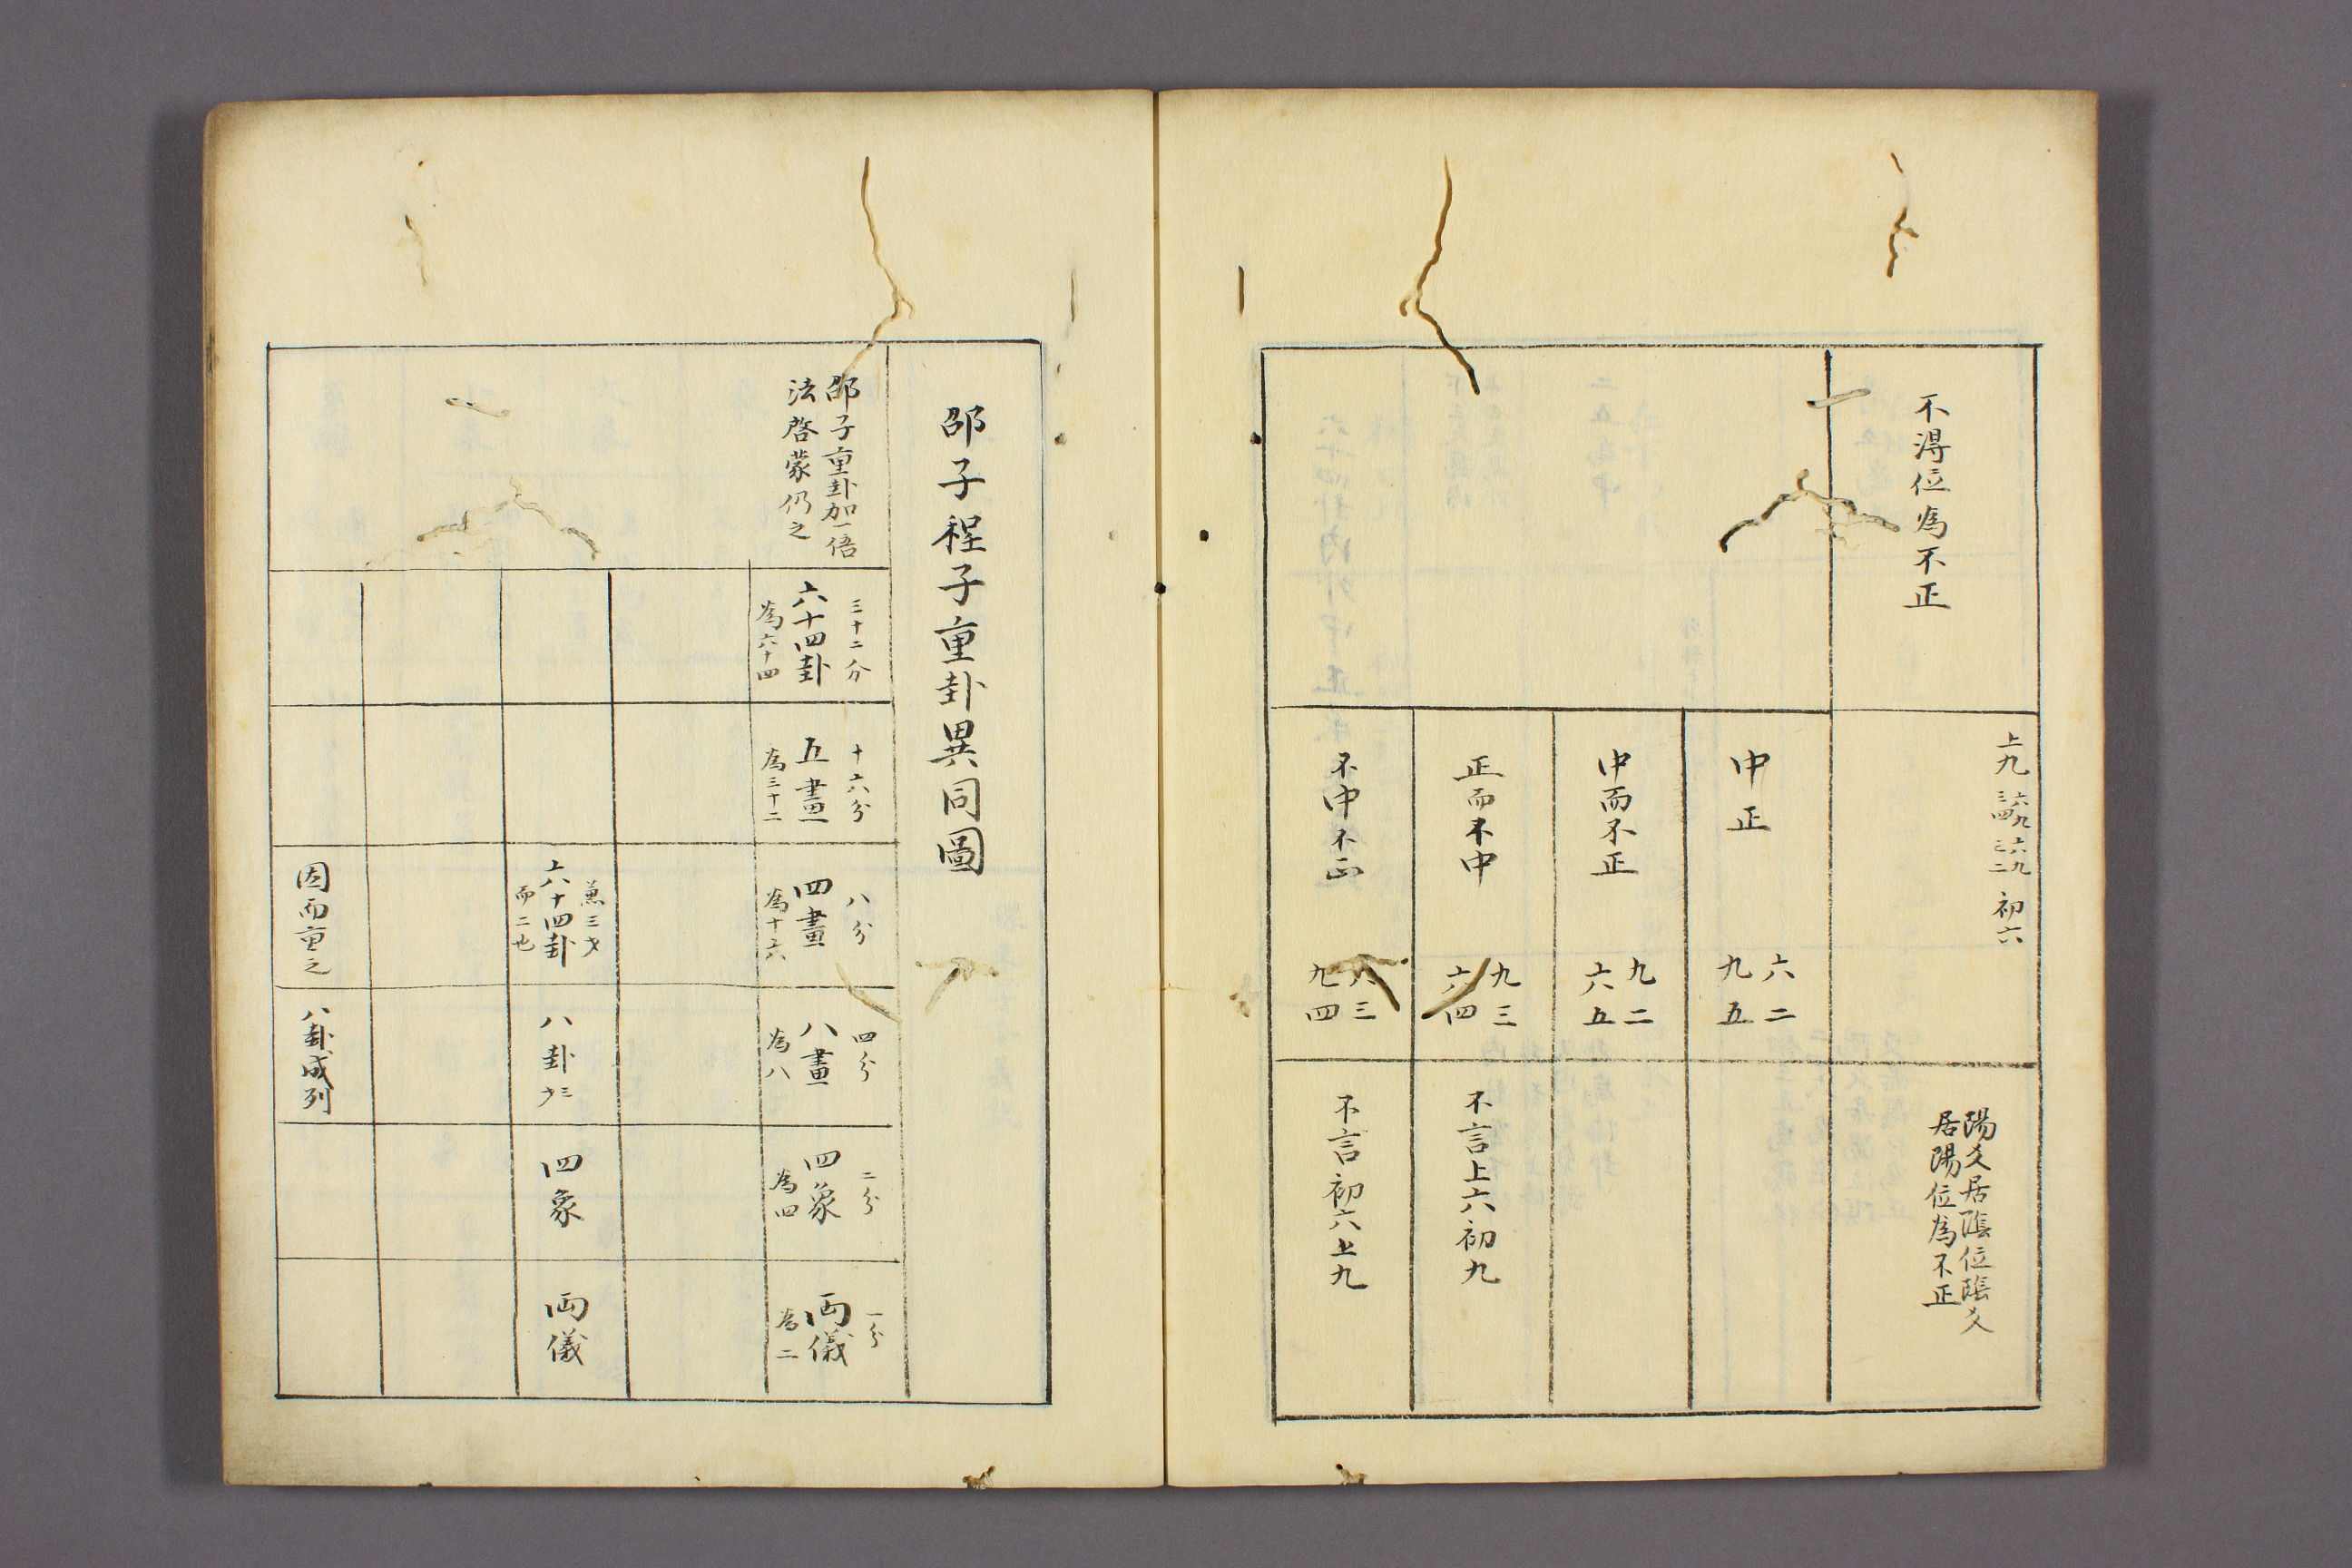 不得位為不正
上九
六三 九四
六三 九二
初六
陽爻居隂位隂爻
居陽位為不正
中正
六二
九五
中而不正
九二
六五
正而不中
九三
六四
不言上六初九
不中不正
六三
九四
不言初六上九
邵子程子重卦異同圖
邵子重卦加一倍
法啓蒙仍之
三十二分
六十四卦
為六十四
十六分
五畫
為三十二
八分
四畫
為十六
四分
八畫
為八
二分
四象
為四
一分
両儀
為二
兼三才
六十四卦
而二也
八卦三才
四象
両儀
因而重之
八卦成列